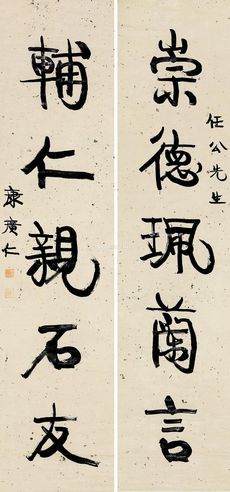 任公先生
崇德珮蘭言
輔仁親石友
康廣仁